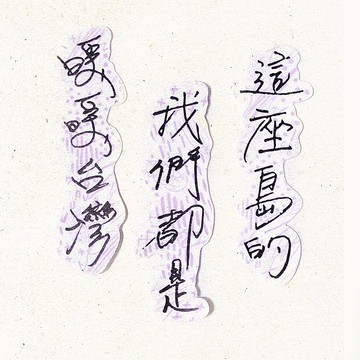 這座島的
我們都是
暖暖台灣